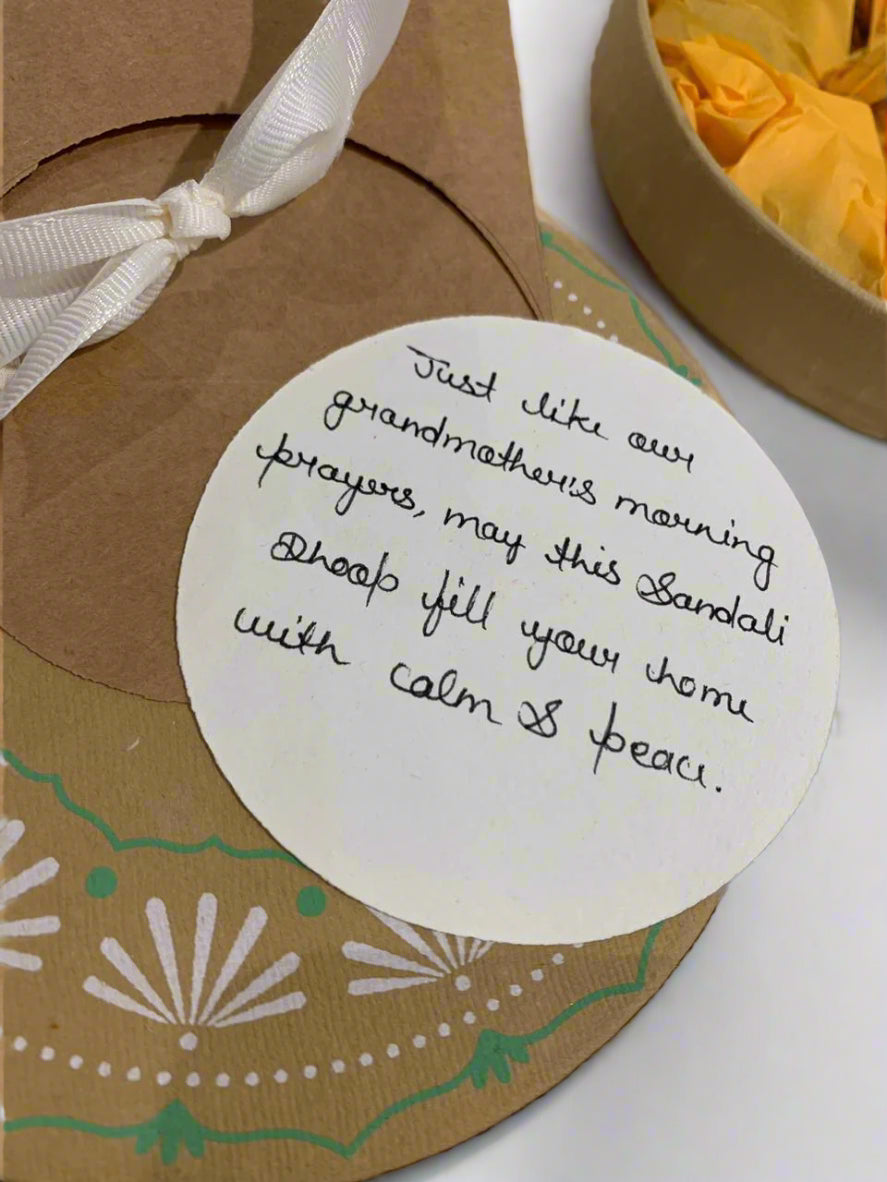 Just like our
grandmother's morning
prayers, may this Sandali
Dhoop fill your home
with calm & peace.